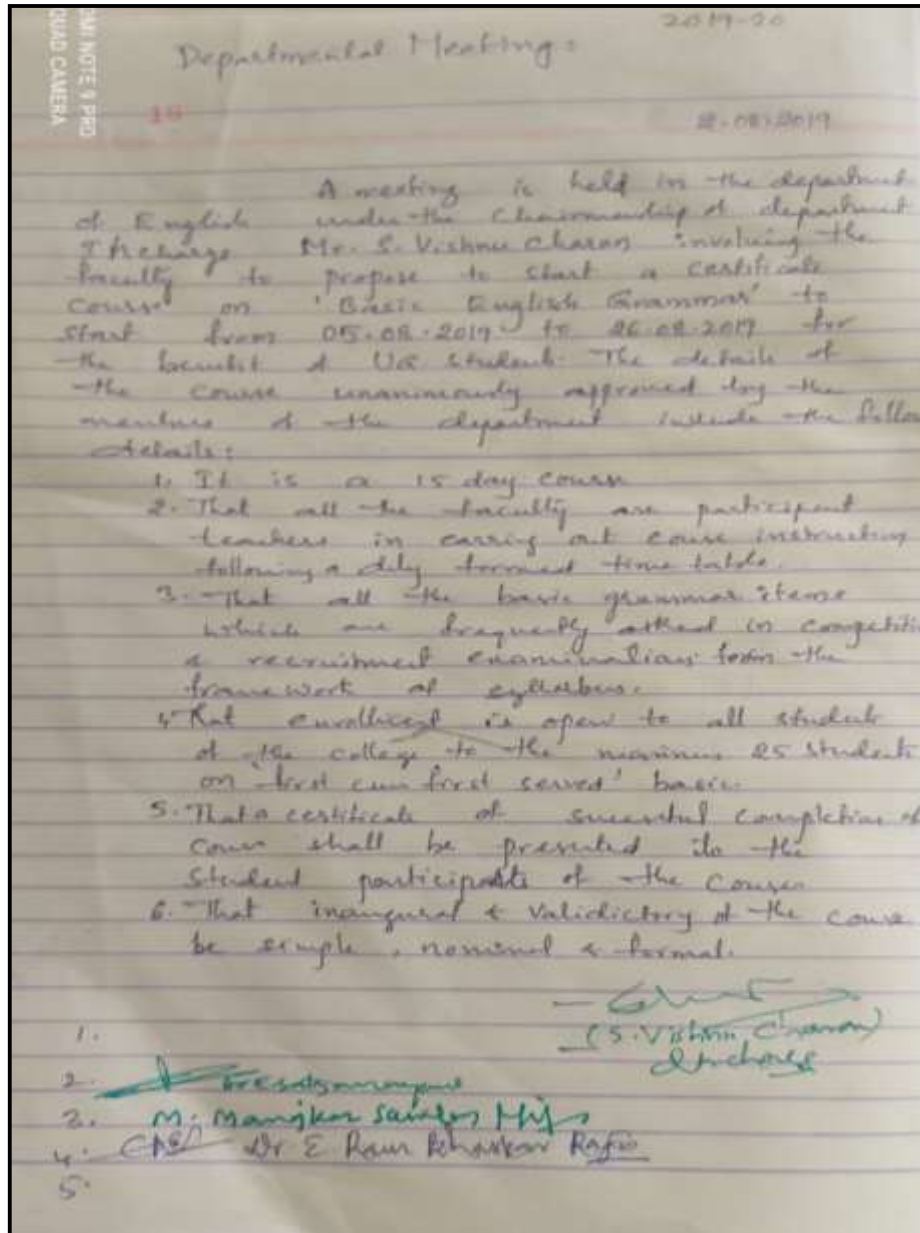 2019-20
Departmental Meeting:
MI NOTE 9 PRO
QUAD CAMERA
2-08-2019
A meeting is held in the department
of English under the Chairmanship of department
Incharge Mr. S. Vishnu Charan involving the
faculty to propose to start a certificate
course on 'Basic English Grammar' to
start from 05-08-2019 to 26-08-2019 for
the benefit of UG students. The details of
the course unanimously approved by the
members of the department include the follow
details:
1. It is a 15 day course
2. That all the faculty are participant
teachers in carring out course instruction
following a duly formed time table.
3. That all the basic grammar items
which are frequently asked in competitiv
& recruitment examinations form the
frame work of syllabus.
4. That enrollment is open to all students
of the college to the 25 students
on 'first cum first served' basis.
5. That a certificate of successful completion of
course shall be presented to the
student participants of the course
6. That inaugural & Validictory of the course
be simple, nominal & formal.
(S. Vishnu Charan)
Incharge
1.
2.
3. M.
4. Dr E Ram Bhaskar Raju
5.